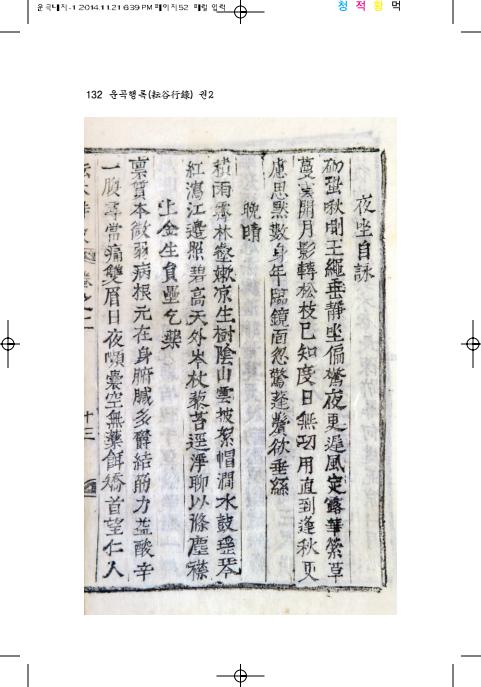 운곡내지-1 2014.11.21 6:39 PM 페이지52 매일 입력
청 적 황 먹
132 운곡행록(耘谷行錄) 권2
夜坐自詠
砌蛩啾唧玉繩垂靜坐偏驚夜更遲風定露華縈草
蔓 開月影轉松枝已知度日無功用直到逢秋更
慮思默數身年臨鏡面忽驚蓬鬢欲垂絲
晩晴
積雨霽林壑嫩凉生樹陰山雲披絮帽澗水鼓瑤琴
紅瀉江邊照碧高天外岑杖藜苔逕淨聊以滌塵襟
上金生員壘乞藥
稟質本微弱病根元在身腑臟多鬱結筋力益酸辛
一腹尋常痛雙眉日夜嚬囊空無藥餌矯首望仁人
十三